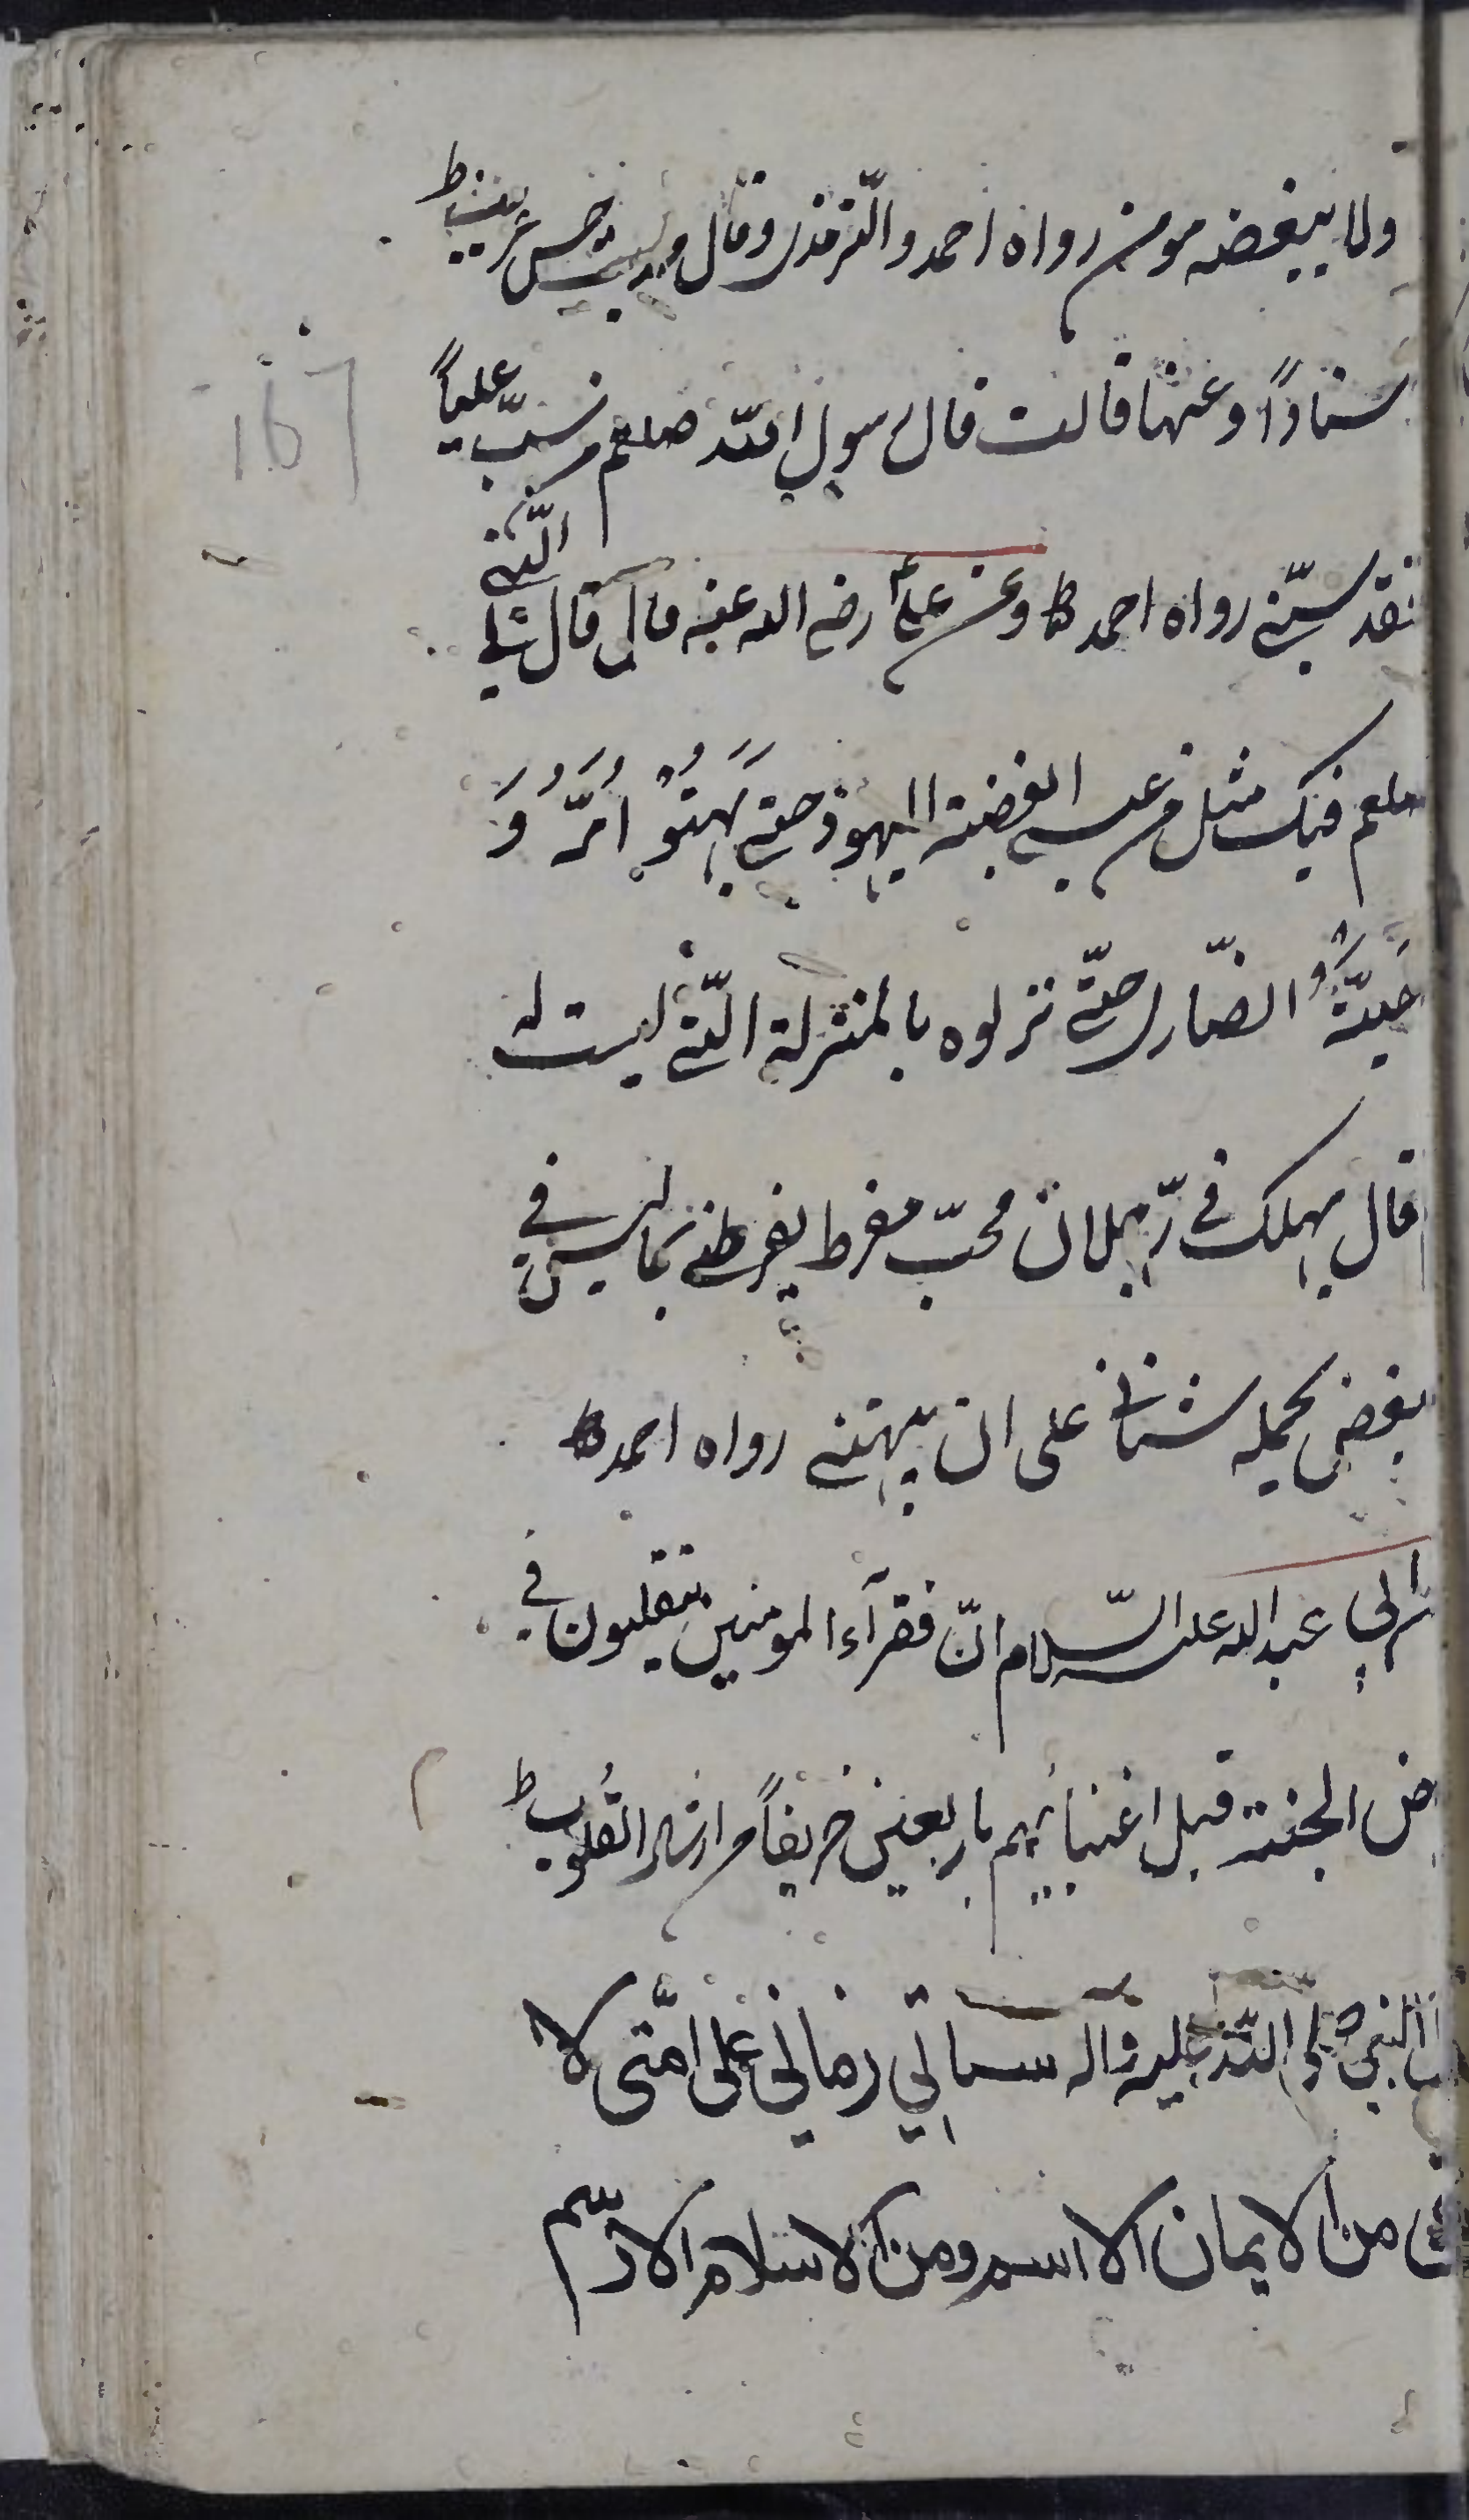 ولا يبغضه مومن رواه احمد والترمذي وقال حديث حسن غريب ط
سناداً وعنها قالت قال رسول الله صلعم من سبّ علياً
فقد سبّني رواه احمد ط وعن علىّ رضي الله عنه قال قال لي النّبي
صلعم فيك مثل من عيسى ابغضته اليهود حتّى بَهَتُوْا اُمَّهُ وَ
حَبَّتْهُ النصّارى حتّى نزلوه بالمنزلة الّتي ليست له
قال يهلك فيّ رجلان محبّ مفرط يفرطني بما ليس فيّ
مبغض يحمله شناني على ان يبهتني رواه احمد ط
ابي عبد الله عليه السّلام انّ فقرآء المومنين يتقلبون في
ض الجنة قبل اغنيائهم باربعين خريفاً من ارشاد القُلوب ط
النبي صلى اللّه عليه وآله سياتي زمانٌ على امّتى لا
من الايمان الا اسم ومن الاسلام الا رسم
161